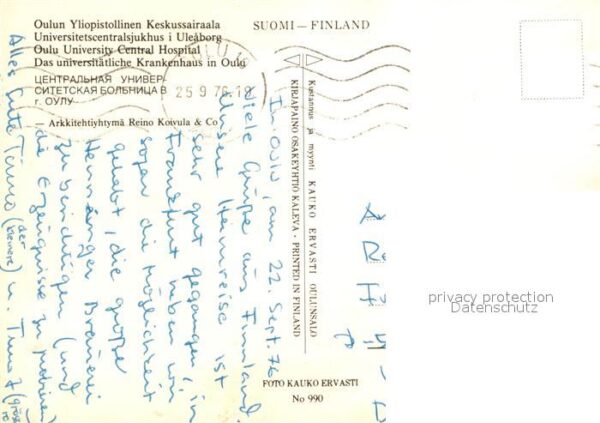 Oulun Yliopistollinen Keskussairaala
Universitetscentralsjukhus i Uleåborg
Oulu University Central Hospital
Das universitätliche Krankenhaus in Oulu
ЦЕНТРАЛЬНАЯ УНИВЕР-
СИТЕТСКАЯ БОЛЬНИЦА В
г. ОУЛУ
— Arkkitehtiyhtymä Reino Koivula & Co
SUOMI — FINLAND
OULU
25.9.76
Kustannus ja myynti KAUKO ERVASTI OULUNSALO
KIRJAPAINO OSAKEYHTIÖ KALEVA - PRINTED IN FINLAND
FOTO KAUKO ERVASTI
No 990
In Oulu, am 22. Sept. 76
Viele Grüße aus Finnland
Unsere Heimreise ist
sehr gut gegangen, in
Frankfurt haben wir
sogar die Möglichkeit
gehabt, die große
Henninger Brauerei
zu besichtigen (und
die Erzeugnisse zu probieren)
Alles Gute Timo (der kleinere) u. Timo
A
R
F
privacy protection
Datenschutz